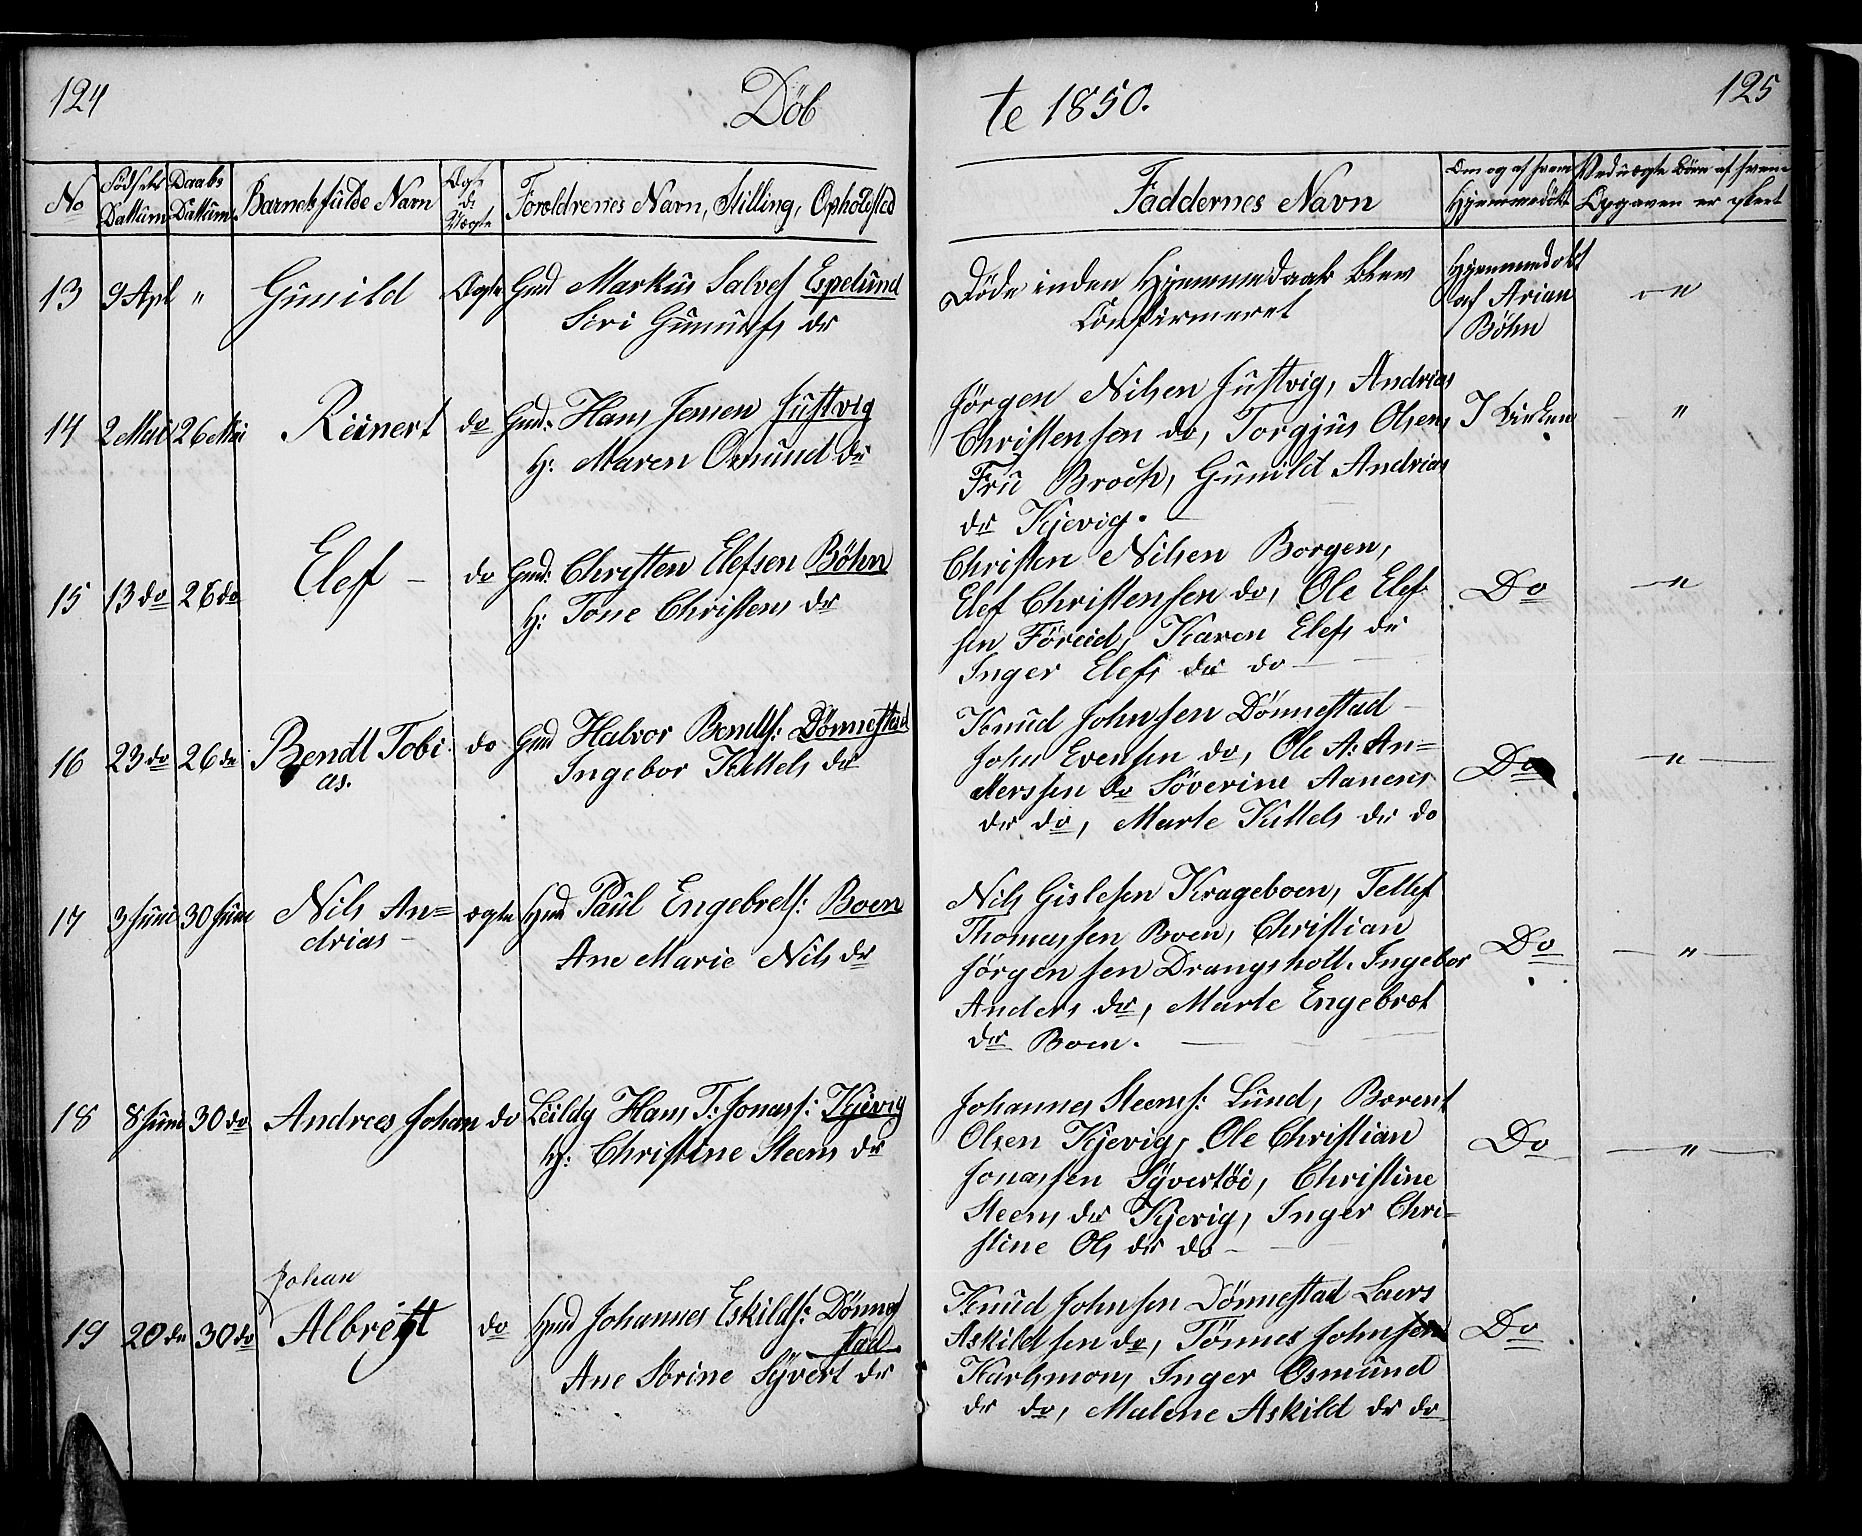 124
Döb
te 1850.
125
No
Födsels Dattum
Daabs Dattum
Barnets fulde Navn
Forældrenes Navn, Stilling, Opholdsted
Faddernes Navn
Hjemmedöbt
Opgaven er skeet
13
9 Apl
"
Gunild
Ægte
Gmd Markus Salves Espelund
Siri Gunulfs dr
Döde inden Hjemmedaab blev
Confirmeret
Hjemmedöbt
af Arian
Böhn
"
14
2 Mai
26 Mai
Reinert
do
Gmd: Hans Jensen Justvig
H: Maren Osmund dr
Jörgen Nilsen Justvig, Andrias
Christensen do, Torgjus Olsens
Fru Broch, Gunild Andrias
dr Kjevig.
I Kirken
"
15
13 do
26 do
Elef
do
Gmd: Christen Elefsen Böhn
H: Tone Christens dr
Christen Nilsen Borgen,
Elef Christensen do, Ole Elef-
sen Föreid, Karen Elefs dr
Inger Elefs dr do
Do
"
16
23 do
26 do
Bendt Tobi
as.
do
Gmd Halvor Bendts: Dönnestad
Ingebor Kittels dr
Knud Johnsen Dönnestad
John Evensen do, Ole A: An=
derssen do Söverine Aanens
dr do, Marte Kittels dr do
Do
"
17
3 Juni
30 Juni
Nils An=
drias
ægte
Gmd Paul Engebrets: Boen
Ane Marie Nils dr
Nils Gislesen Krageboen, Tellef
Thomassen Boen, Christian
Jörgensen Drangsholt. Ingebor
Anders dr, Marte Engebret
dr Boen.
Do
"
18
8 Juni
30 do
Andreas Johan
do
Leildg Hans T: Jonass: Kjevig
H: Christine Steens dr
Johannes Steens: Lund, Berent
Olsen Kjevig, Ole Christian
Jonassen Syvertöi, Christine
Steens dr Kjevig, Inger Chri=
stine Ols dr do
Do
"
19
20 do
30 do
Johan
Albregt
do
Gmd Johannes Eskilds: Dönne
stad
Ane Sörine Syvert dr
Knud Johnsen Dönnestad Laers
Askildsen do, Tönnes Johnsen
Karlsmons, Inger Osmund
dr do, Malene Askild dr do
Do